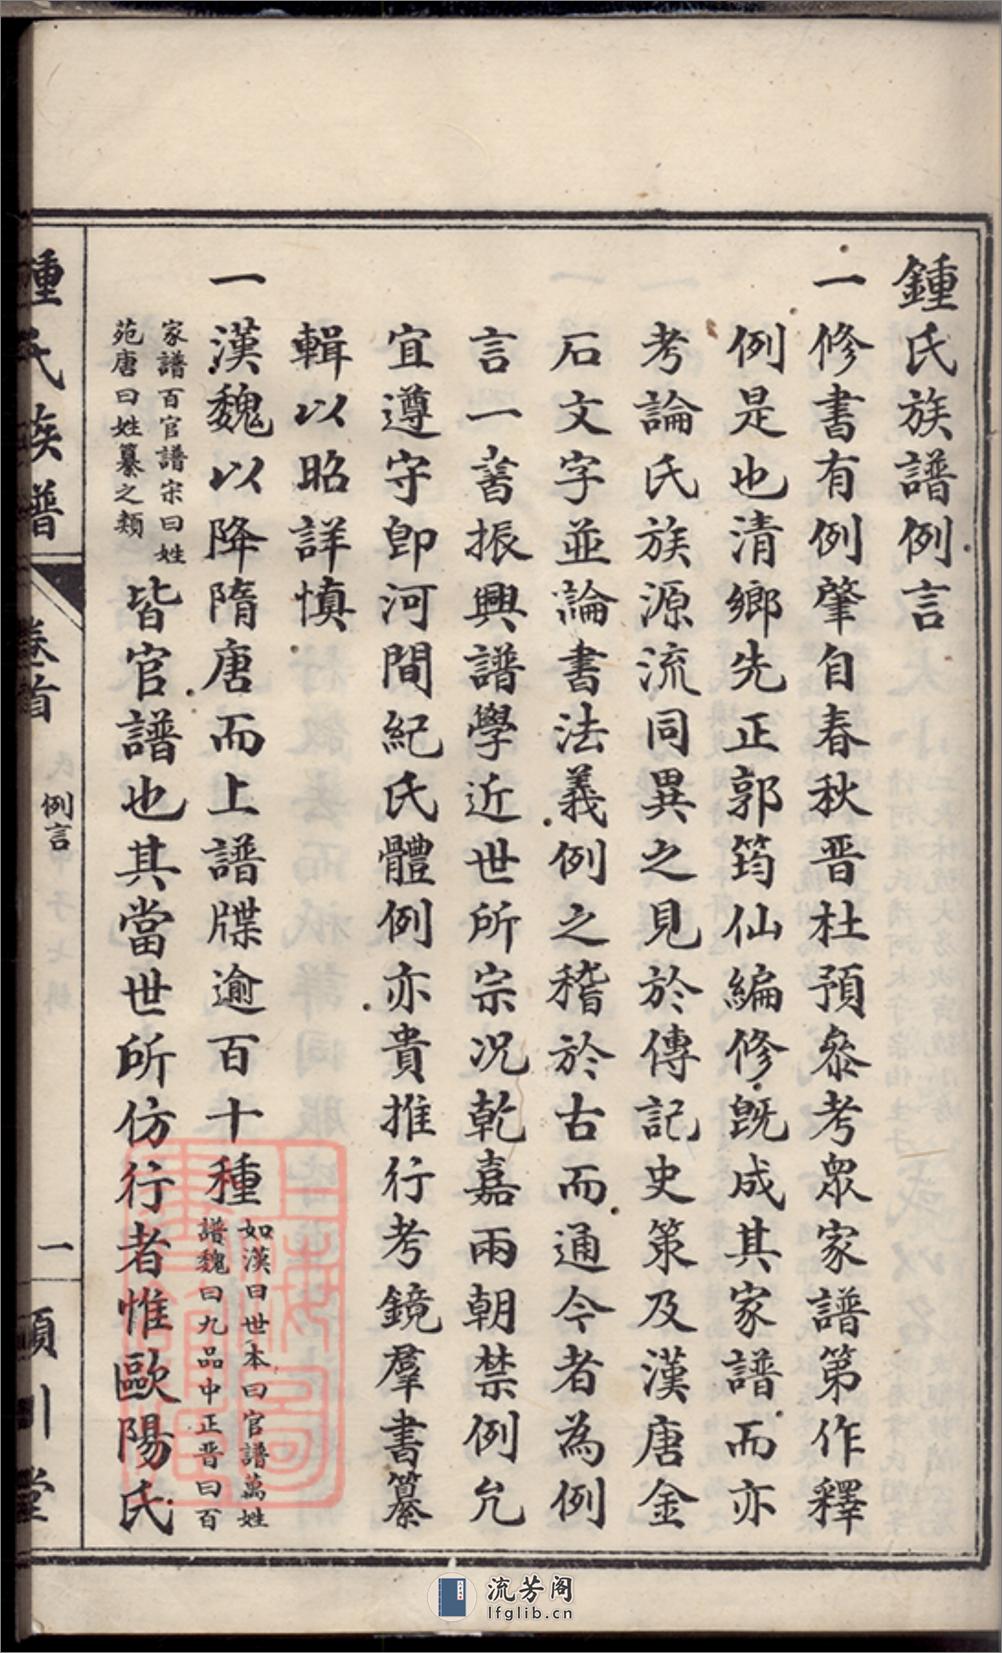 鍾氏族譜例言
一修書有例肇自春秋晋杜預叅考眾家譜第作釋
例是也清鄉先正郭筠仙編修既成其家譜而亦
考論氏族源流同異之見於傳記史策及漢唐金
石文字並論書法義例之稽於古而通今者為例
言一書振興譜學近世所宗况乾嘉兩朝禁例允
宜遵守卽河間紀氏體例亦貴推行考鏡羣書纂
輯以昭詳慎
一漢魏以降隋唐而上譜牒逾百十種如漢曰世本曰官譜萬姓
譜魏曰九品中正晋曰百
家譜百官譜宋曰姓
苑唐曰姓纂之類皆官譜也其當世所仿行者惟歐陽氏
鍾氏族譜
卷首
例言
一
潁川堂
上海圖書館藏
流芳阁
lfglib.cn